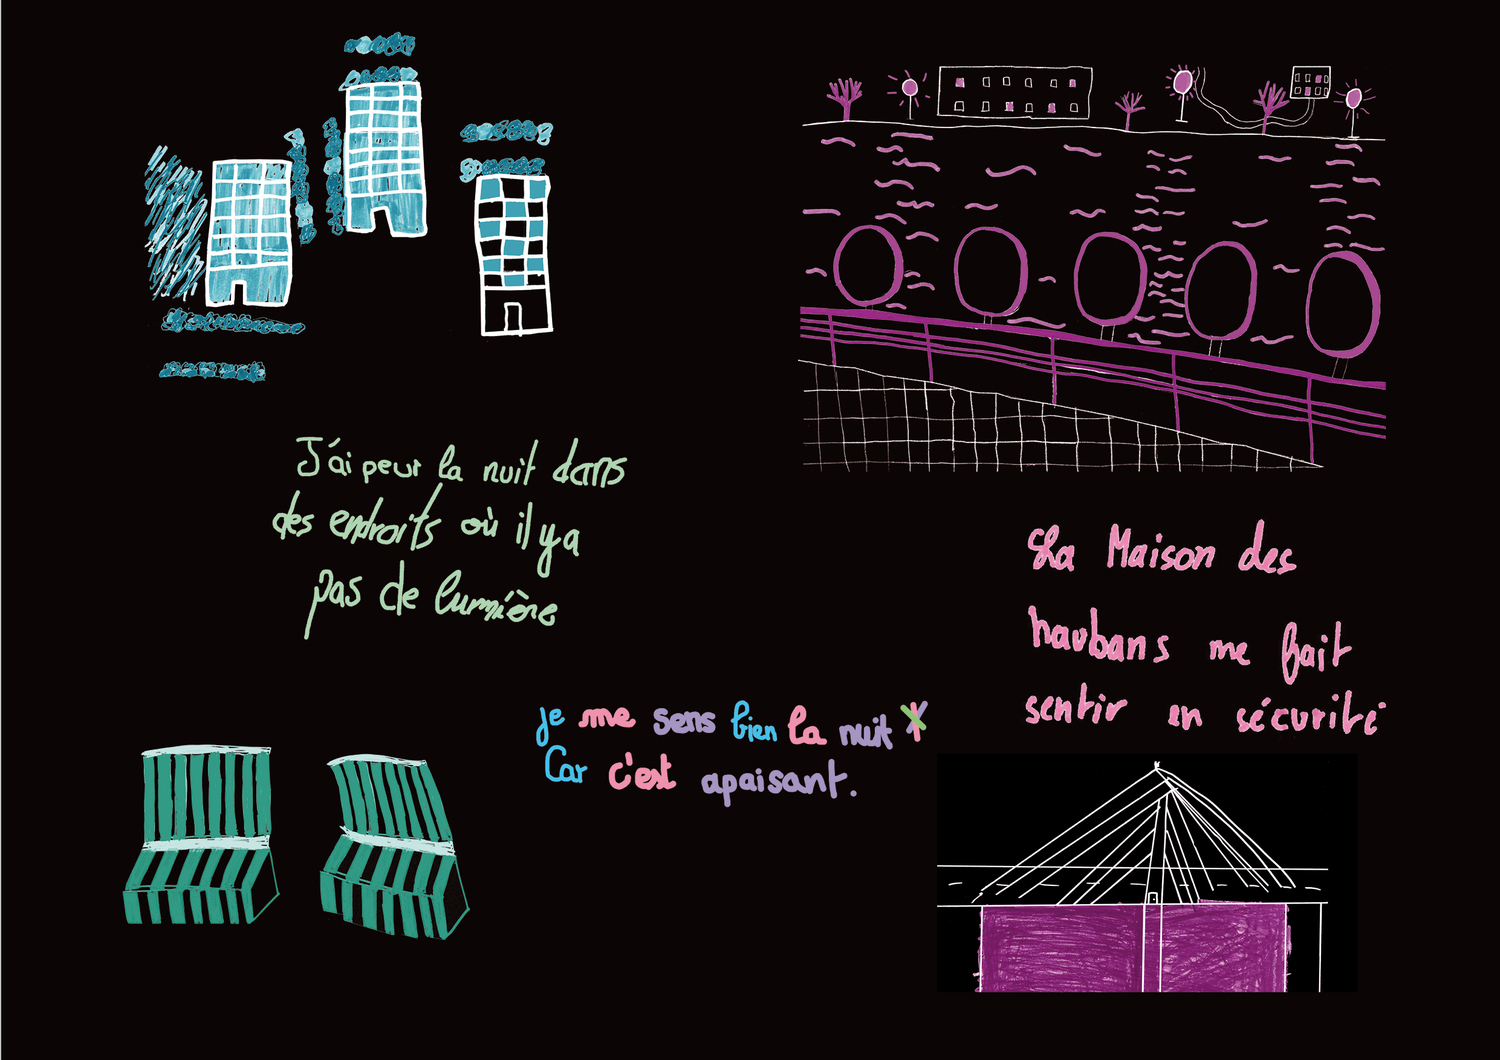 J'ai peur la nuit dans
des endroits où il y a
pas de lumière
La Maison des
haubans me fait
sentir en sécurité
je me sens bien la nuit
Car c'est apaisant.